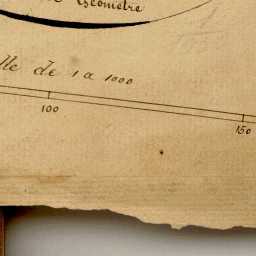 Géomètre
lle de 1 a 1000
100
150